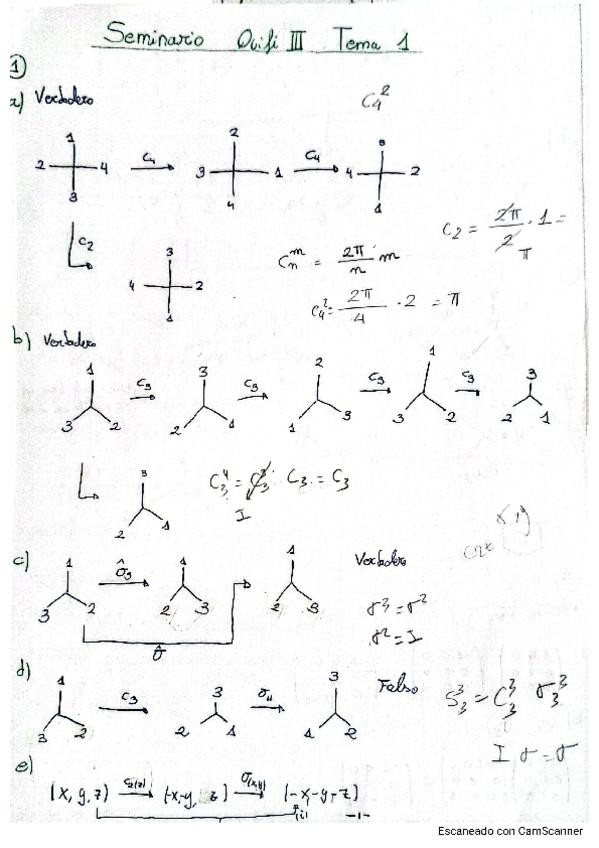 Seminario Quifi III Tema 1
1)
a) Verdadero
C₄²
1
2 4
3
C₄
2
3 1
4
C₄
3
4 2
1
C₂
3
4 2
1
Cₙᵐ = 2π/n · m
C₄² = 2π/4 · 2 = π
C₂ = 2π/2 · 1 =
π
b) Verdadero
1
3 2
C₃
3
2 1
C₃
2
1 3
C₃
1
3 2
C₃
3
2 1
3
2 1
C₃⁴ = C₃³ C₃ = C₃
I
c)
1
3 2
σ̂₃
1
2 3
1
2 3
σ̂
Verdadero
σ³ = σ²
σ² = I
d)
1
3 2
C₃
3
2 1
σᵥ
3
1 2
Falso
S₃³ = C₃³ σ₃³
I σ = σ
e)
(x, y, z) C₂(z) (-x,-y, z) σ(x,y) (-x,-y,-z)
(i)
-1-
Escaneado con CamScanner